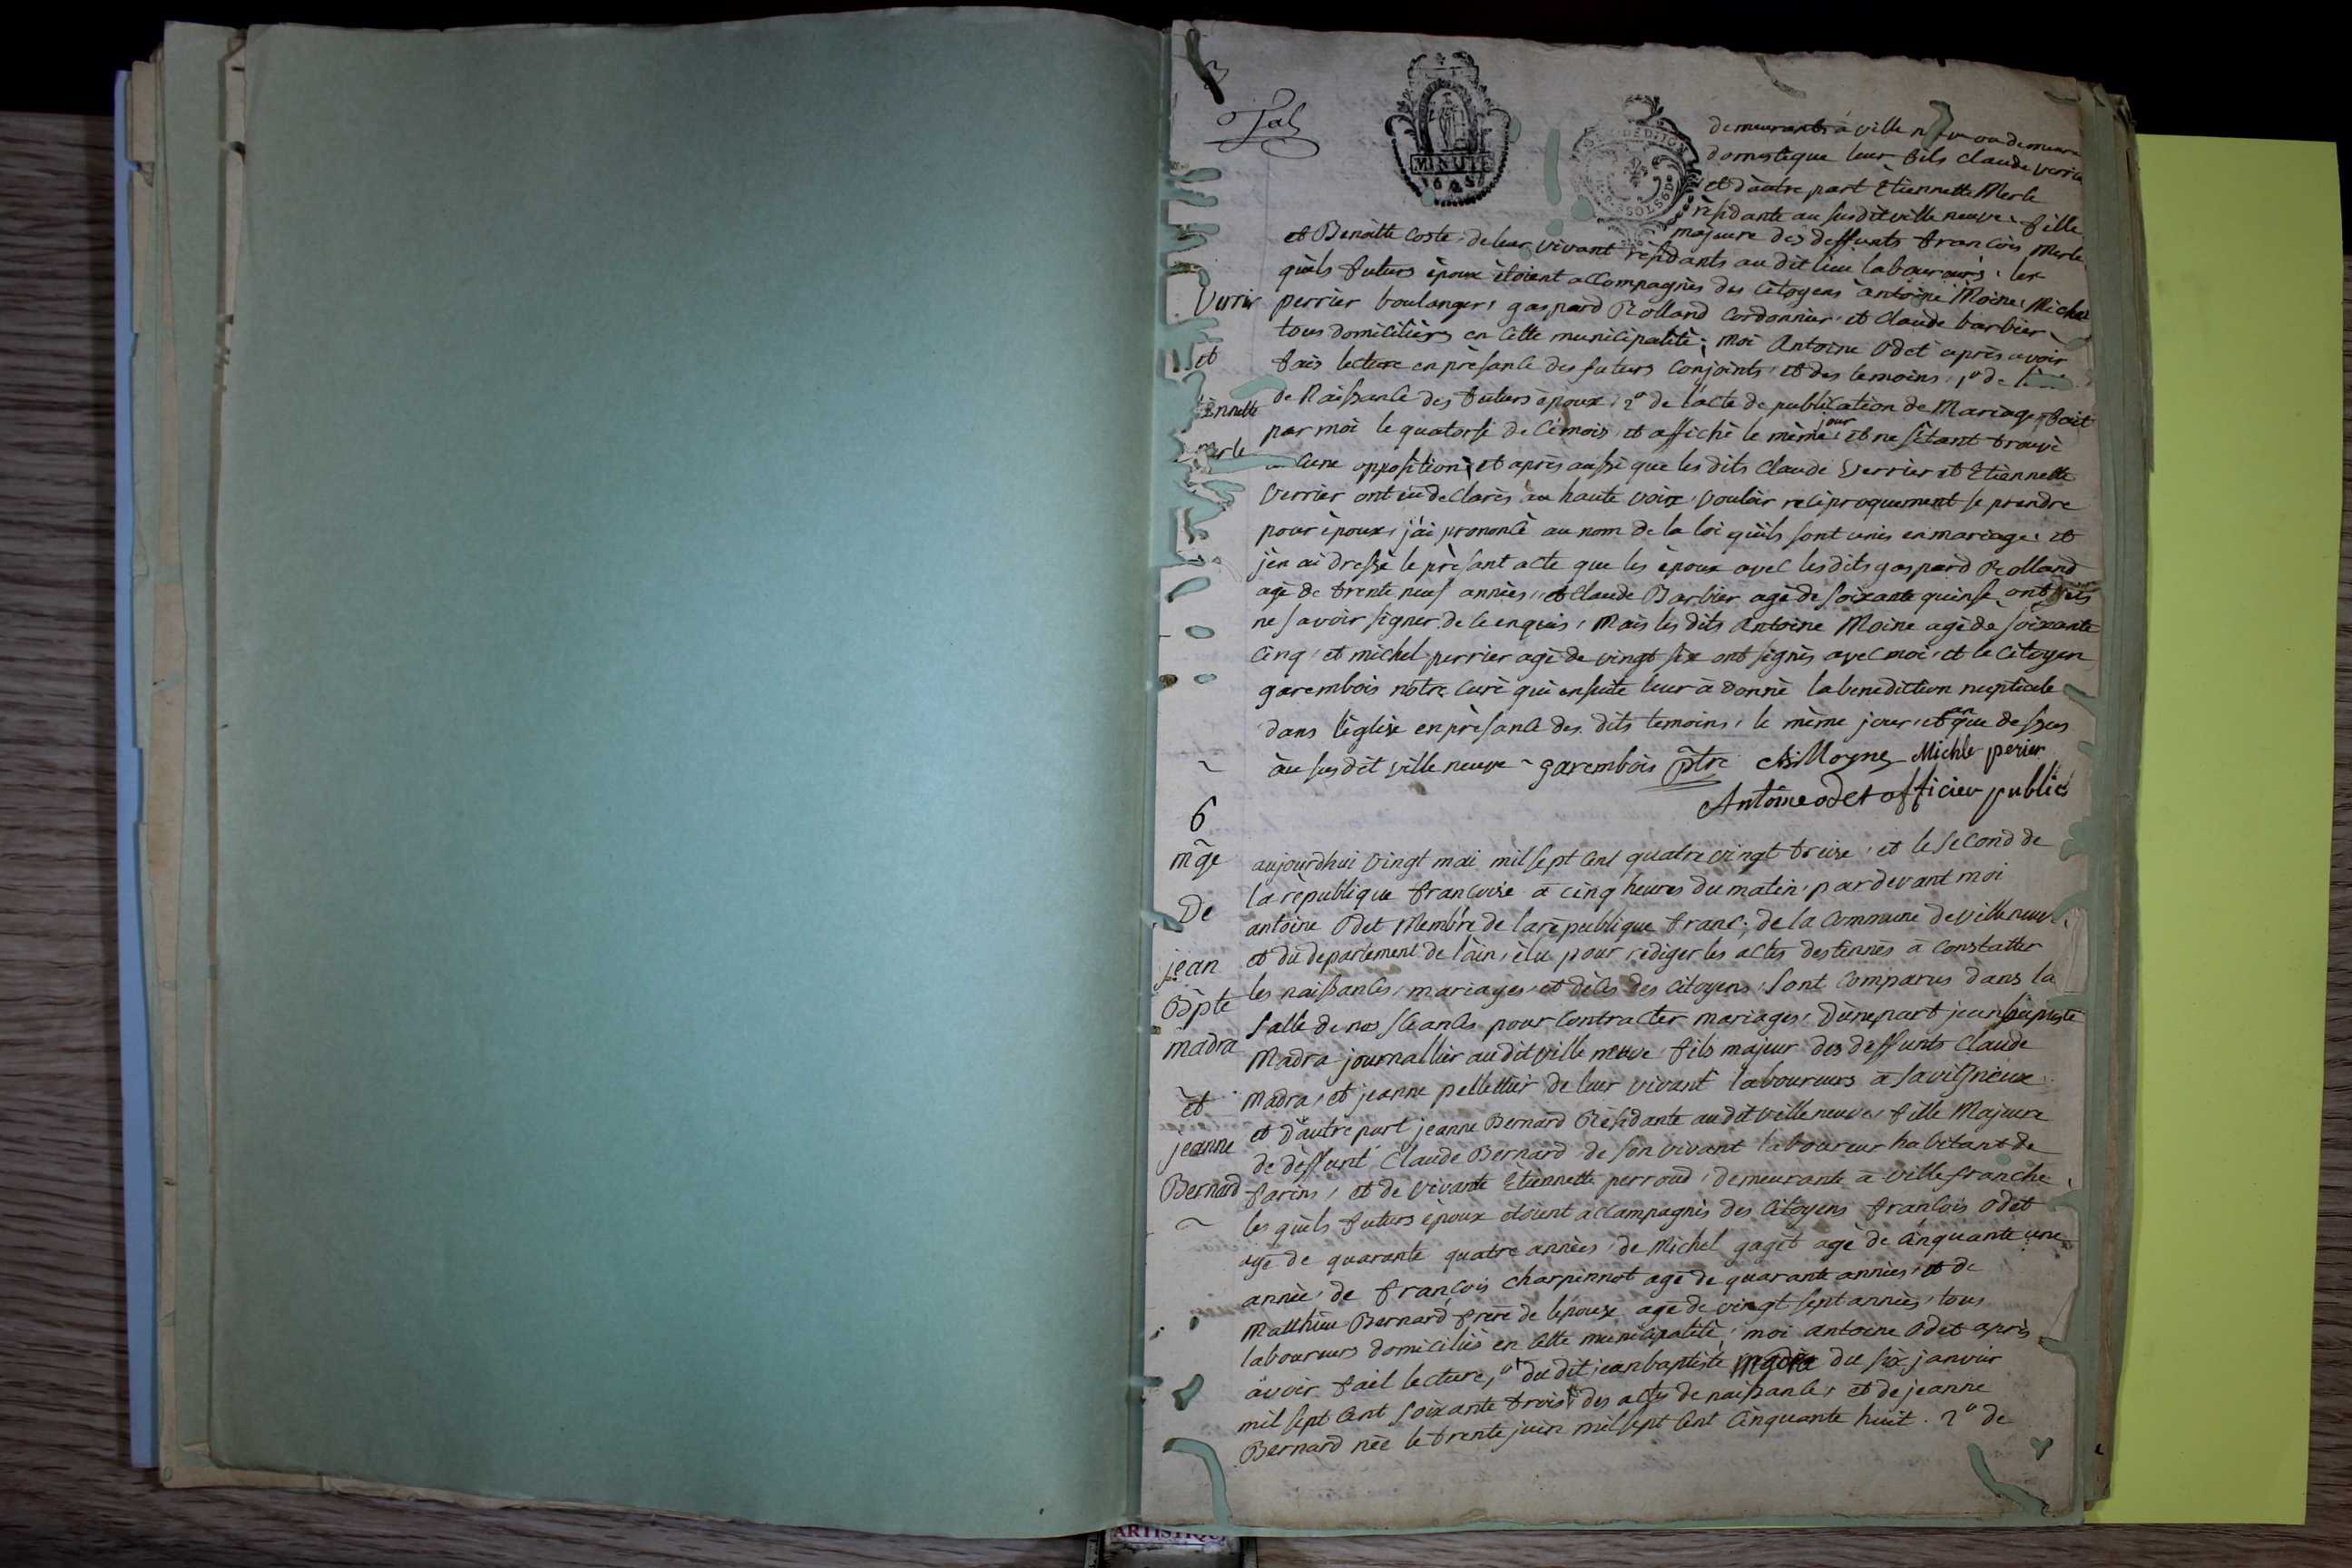 3
Jal
MINUTE
demeurants à ville n
domestique leur fils claude verrie
et d'autre part Etiennette Merle
résidante au susdit ville neuve fille
majeure des deffunts francois Merle
et Benoitte Coste, de leur vivant résidants au dit lieu laboureurs. les
quels futurs époux étoient accompagnés des citoyens antoine Moine, Michel
perrier boulanger, gaspard Rolland cordonnier, et Claude barbier
tous domiciliers en cette municipalité, moi Antoine Odet après avoir
fais lecture en présance des futurs conjoints, et des temoins, 1º de
de Naissance des futurs époux, 2º de l'acte de publication de Mariage, fait
par moi le quatorse de ce mois, et affiché le même jour, et ne s'étant trouvé
aucune opposition, et après aussi que les dits Claude Verrier et Etiennette
Verrier ont eu declarés au haute voix, vouloir reciproquement se prendre
pour époux, j'ai prononcé au nom de la loi qu'ils sont unis en mariage. et
j'en ai dressé le présant acte que les époux avec les dits gaspard Rolland
agé de trente neuf années, et Claude Barbier agé de soixante quinse, ont dits
ne savoir signer de ce enquis, Mais les dits Antoine Moine agé de soixante
cinq, et michel perrier agé de vingt six ont signés avec moi, et le citoyen
garembois nôtre curé qui ensuite leur à donné la benediction nuptiale
dans l'église en présance des dits temoins, le même jour, et an que dessus
àu susdit ville neuve ~ garembois ptre A Moyne Michle perier
Antoine odet officier public
Verrie
et
tiennette
merle
~
6
mge
De
jean
Bpte
madra
et
jeanne
Bernard
~
aujourdhui vingt mai mil sept cent quatre vingt treise, et le second de
la république françoise à cinq heures du matin, par devant moi
antoine Odet Membre de la république franc. de la commune de villeneuve
et du departement de l'ain, élu pour rediger les actes destinnés à constatter
les naissances, mariages, et décés des citoyens, sont comparus dans la
salle de nos sceances pour contracter mariages, d'une part jean baptiste
Madra journallier au dit ville neuve fils majeur des deffunts Claude
Madra, et jeanne pellettier de leur vivant laboureurs à Savigneux
et d'autre part jeanne Bernard Résidante au dit ville neuve, fille Majeure
de deffunt Claude Bernard de son vivant laboureur habitant de
farins, et de vivante Etiennette perroud, demeurante à ville franche
les quels futurs époux étoient accampagnés des citoyens francois Odet
agé de quarante quatre années, de Michel gaget agé de cinquante une
année, de françois Charpinnot agé de quarante années, et de
Matthieu Bernard frere de lépouse agé de vingt sept années, tous
laboureurs domiciliés en cette municipalité, moi antoine Odet après
àvoir fait lecture, 1º du dit jean baptiste madra du six janvier
mil sept cent soixante trois, des actes de naissance, et de jeanne
Bernard née le trente juin mil sept cent cinquante huit. 2º de
ARTISTIQU